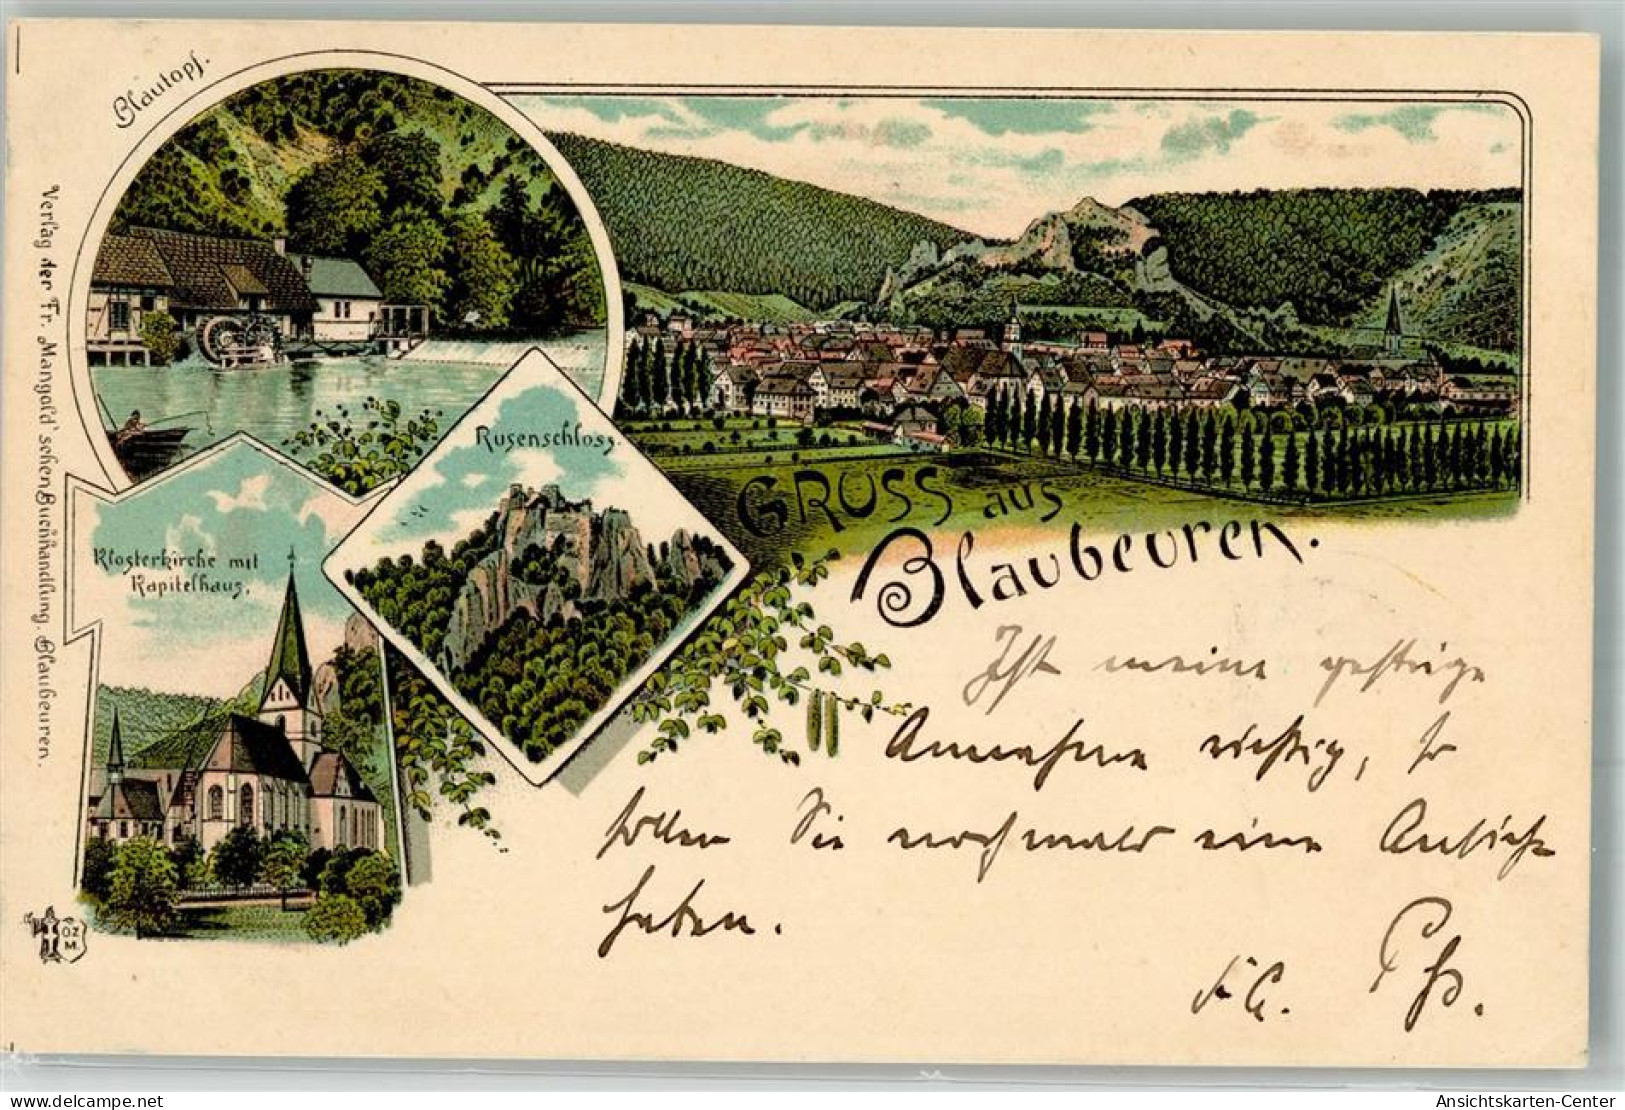 Blautopf.
Verlag der Fr. Mangold'schen Buchhandlung. Blaubeuren.
Rusenschloss.
Klosterkirche mit
Kapitelhaus.
GRUSS aus
Blaubeuren.
Ist meine gestrige
Annahme richtig, so
sollen Sie nochmals eine Ansicht
haben.
OZ
M.
Ansichtskarten-Center